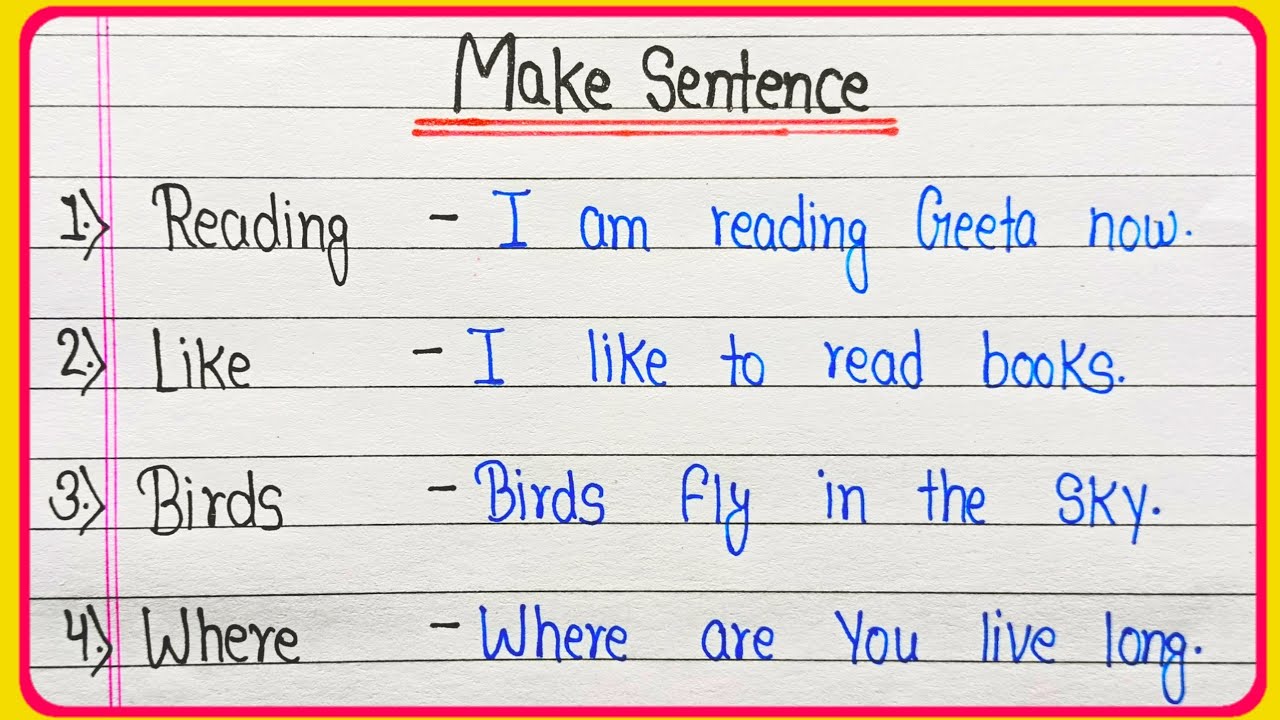 Make Sentence
1.) Reading - I am reading Geeta now.
2.) Like - I like to read books.
3.) Birds - Birds fly in the sky.
4.) Where - Where are You live long.